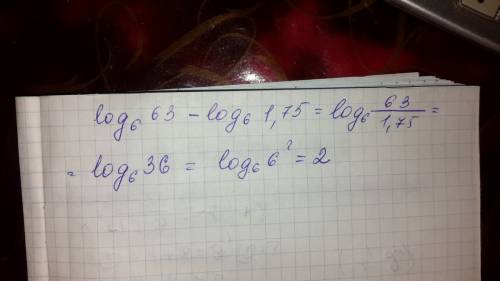 log₆ 63 - log₆ 1,75 = log₆ 63/1,75 =
= log₆ 36 = log₆ 6² = 2